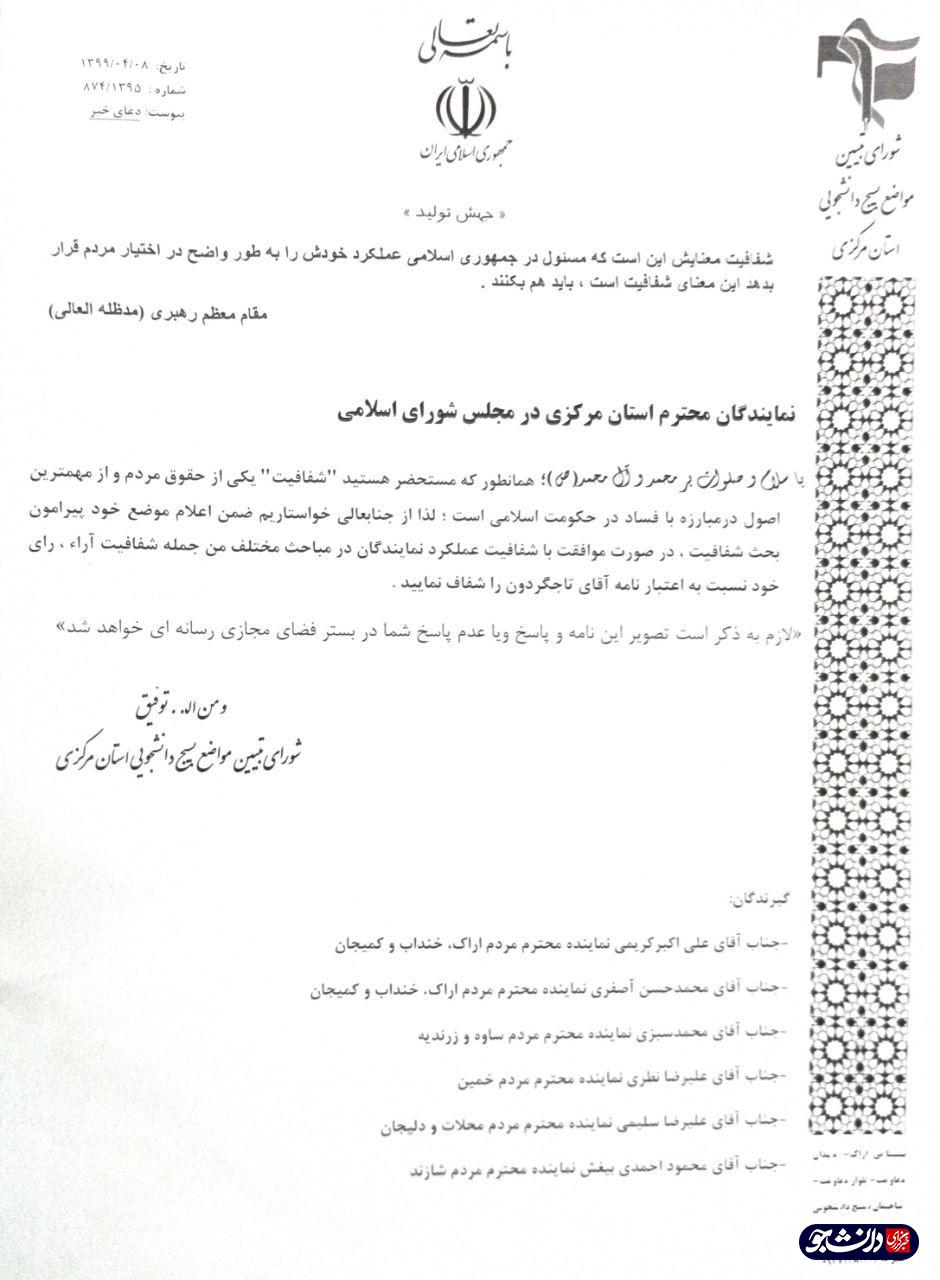 باسمه تعالی
جمهوری اسلامی ایران
تاریخ: ۱۳۹۹/۰۴/۰۸
شماره: ۸۷۴/۱۳۹۵
پیوست: دعای خیر
شورای تبیین
مواضع بسیج دانشجویی
استان مرکزی
« جهش تولید »
شفافیت معنایش این است که مسئول در جمهوری اسلامی عملکرد خودش را به طور واضح در اختیار مردم قرار
بدهد این معنای شفافیت است ، باید هم بکنند .
مقام معظم رهبری (مدظله العالی)
نمایندگان محترم استان مرکزی در مجلس شورای اسلامی
با سلام و صلوات بر محمد و آل محمد(ص)؛ همانطور که مستحضر هستید "شفافیت" یکی از حقوق مردم و از مهمترین
اصول درمبارزه با فساد در حکومت اسلامی است ؛ لذا از جنابعالی خواستاریم ضمن اعلام موضع خود پیرامون
بحث شفافیت ، در صورت موافقت با شفافیت عملکرد نمایندگان در مباحث مختلف من جمله شفافیت آراء ، رای
خود نسبت به اعتبار نامه آقای تاجگردون را شفاف نمایید .
«لازم به ذکر است تصویر این نامه و پاسخ ویا عدم پاسخ شما در بستر فضای مجازی رسانه ای خواهد شد»
ومن ال.. توفیق
شورای تبیین مواضع بسیج دانشجویی استان مرکزی
گیرندگان:
-جناب آقای علی اکبرکریمی نماینده محترم مردم اراک، خنداب و کمیجان
-جناب آقای محمدحسن آصفری نماینده محترم مردم اراک، خنداب و کمیجان
-جناب آقای محمدسبزی نماینده محترم مردم ساوه و زرندیه
-جناب آقای علیرضا نظری نماینده محترم مردم خمین
-جناب آقای علیرضا سلیمی نماینده محترم مردم محلات و دلیجان
-جناب آقای محمود احمدی بیغش نماینده محترم مردم شازند
اراک- میدان
مقاومت- بلوار مقاومت-
ساختمان بسیج دانشجویی
خبرگزاری دانشجو